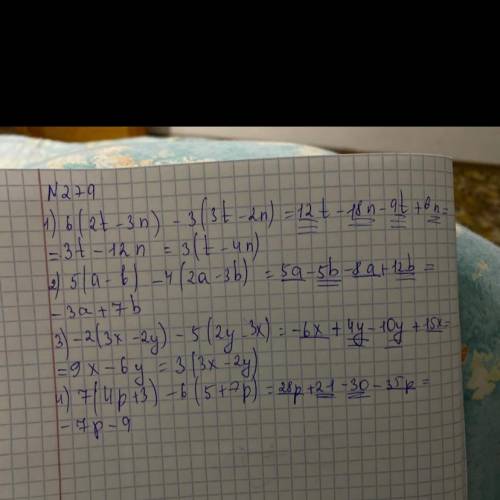 N279
1) 6(2t-3n) -3(3t-2n) = 12t-18n-9t+6n=
=3t-12n = 3(t-4n)
2) 5(a-b) -4(2a-3b) = 5a-5b-8a+12b =
-3a+7b
3) -2(3x-2y) -5(2y-3x) = -6x+4y-10y+15x=
=9x-6y = 3(3x-2y)
4) 7(4p+3) -6(5+7p) = 28p+21-30-35p=
-7p-9